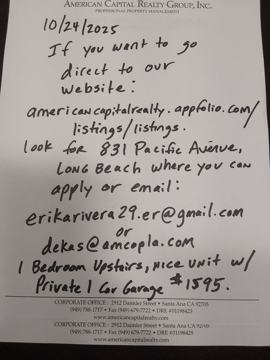 AMERICAN CAPITAL REALTY GROUP, INC.
PROFESSIONAL PROPERTY MANAGEMENT
10/24/2025
If you want to go
direct to our
website:
americancapitalrealty.appfolio.com/
listings/listings.
look for 831 Pacific Avenue,
LONG BEACH where you can
apply or email:
erikarivera29.er@gmail.com
or
dekas@amcopla.com
1 Bedroom Upstairs, NICE UNIT w/
Private 1 Car Garage $1595.
CORPORATE OFFICE: 2912 Daimler Street • Santa Ana CA 92705
(949) 786-1717 • Fax (949) 679-7722 • DRE #01198425
www.americancapitalrealty.com
CORPORATE OFFICE: 2912 Daimler Street • Santa Ana CA 92705
(949) 786-1717 • Fax (949) 679-7722 • DRE #01198425
www.americancapitalrealty.com